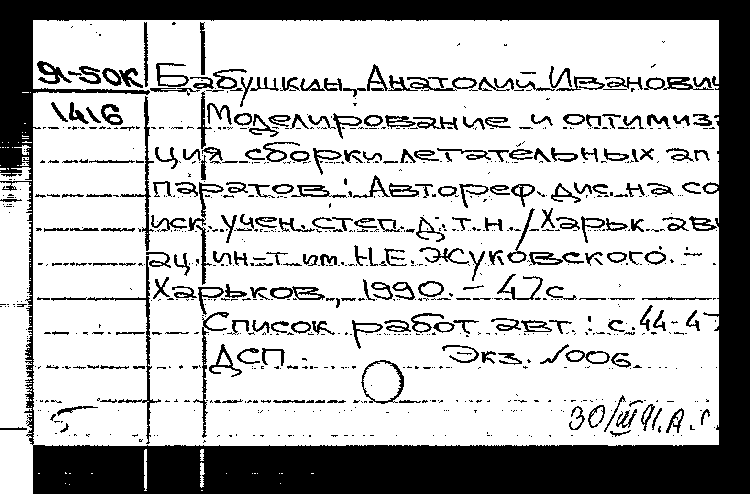 91-50К Бабушкин, Анатолий Иванович
1416 Моделирование и оптимиза
ция сборки летательных ап
паратов : Автореф. дис. на со
иск. учен. степ. д.т.н. / Харьк. ави
ац. ин-т им. Н.Е. Жуковского. -
Харьков, 1990. - 47с.
Список работ авт. : с. 44-47
ДСП. Экз. №006
5 30/III 91. А.Г.